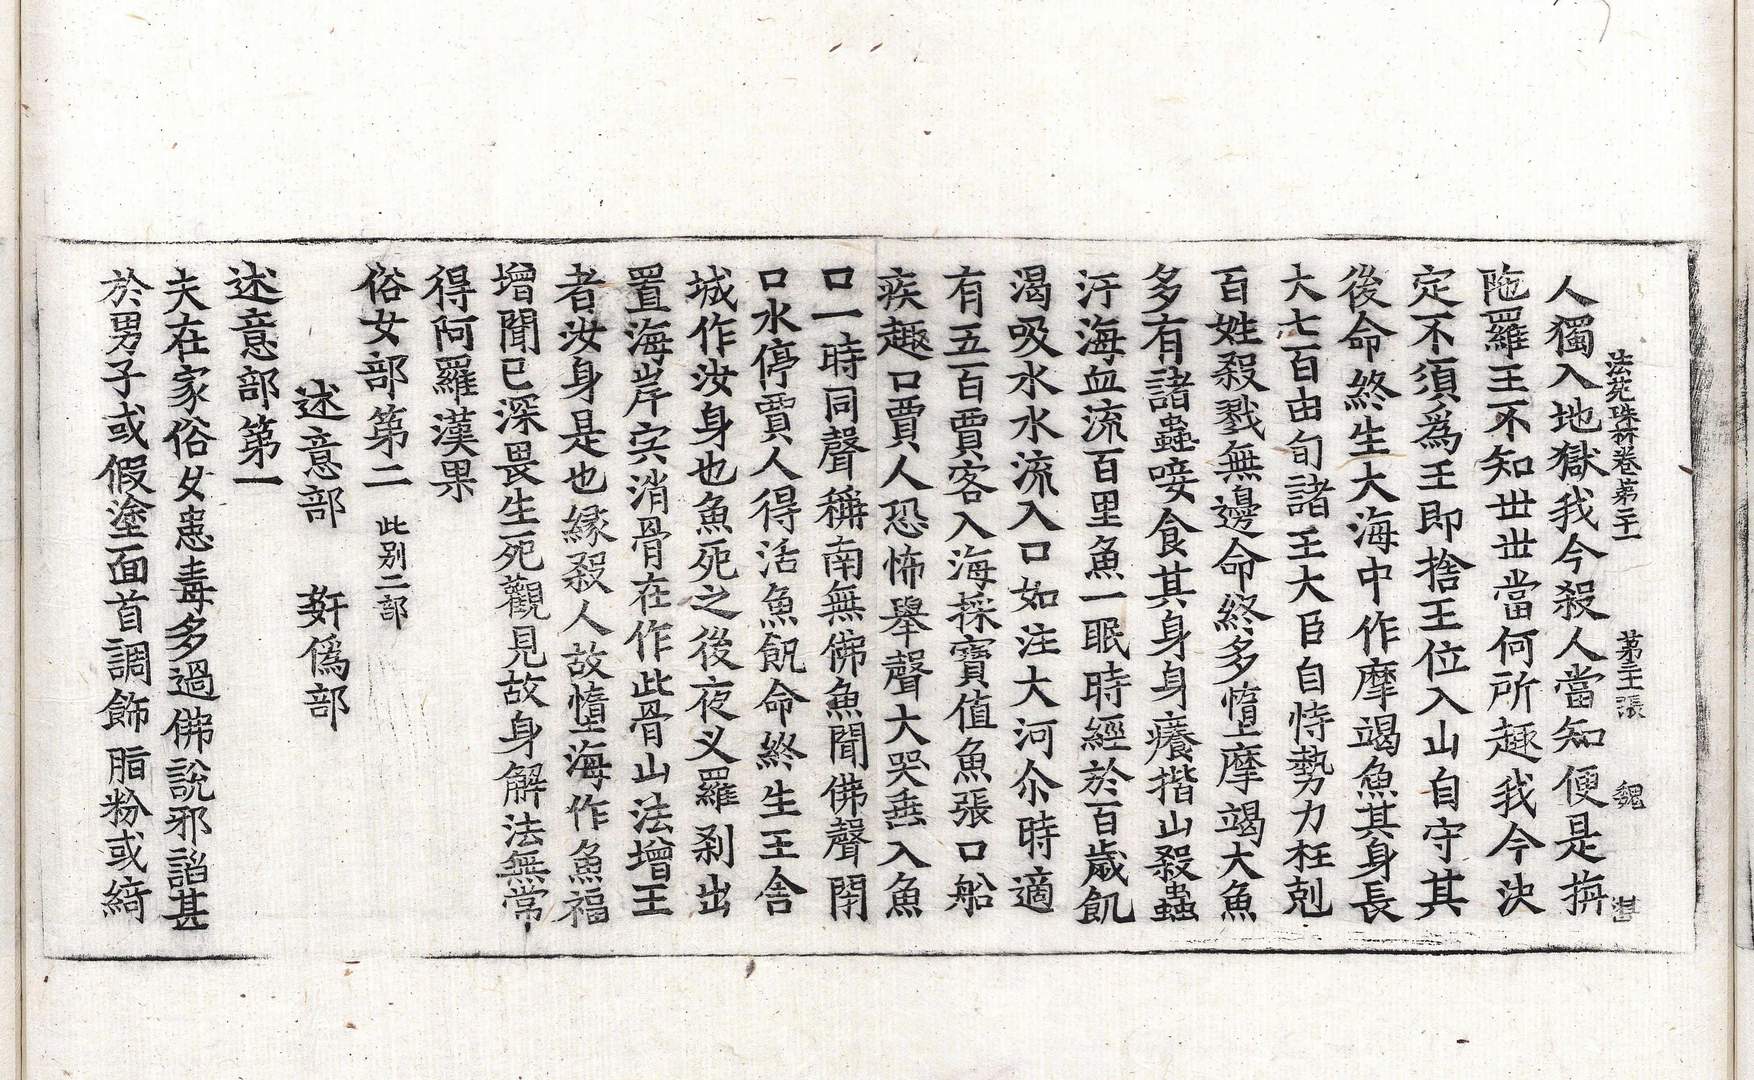 法苑珠林卷第二十一 第三十二張 魏 甚
人獨入地獄我今殺人當知便是旃
陁羅王不知世世當何所趣我今決
定不須爲王即捨王位入山自守其
後命終生大海中作摩竭魚其身長
大七百由旬諸王大臣自恃勢力枉剋
百姓殺戮無邊命終多墮摩竭大魚
多有諸蟲唼食其身身癢揩山殺蟲
汙海血流百里魚一眠時經於百歲飢
渴吸水水流入口如注大河尒時適
有五百賈客入海採寶值魚張口船
疾趣口賈人恐怖舉聲大哭垂入魚
口一時同聲稱南無佛魚聞佛聲閉
口水停賈人得活魚飢命終生王舍
城作汝身也魚死之後夜叉羅刹出
置海岸宍消骨在作此骨山法增王
者汝身是也緣殺人故墮海作魚福
增聞已深畏生死觀見故身解法無常
得阿羅漢果
俗女部第二 此别二部
述意部 姧僞部
述意部第一
夫在家俗女患毒多過佛說邪諂甚
於男子或假塗面首調飾脂粉或綺